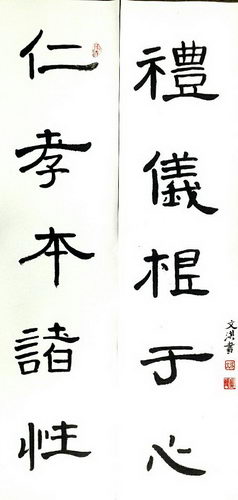 禮儀根于心
仁孝本諸性
文洪書